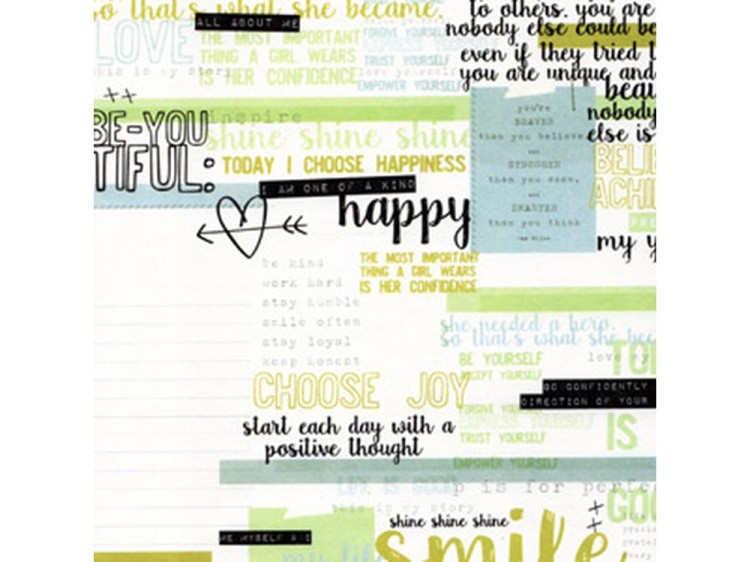 so that's what she became.
ALL ABOUT ME
to others. you are
nobody else could be
even if they tried t
you are unique and
beau
nobody
else is
LOVE
THE MOST IMPORTANT
THING A GIRL WEARS
IS HER CONFIDENCE
FORGIVE YOURSELF
TRUST YOURSELF
love yourself
EMPOWER YOURSELF
this is my story
inspire
BE-YOU
TIFUL:
shine shine shine
TODAY I CHOOSE HAPPINESS
I AM ONE OF A KIND
happy
you're
BRAVER
than you believe,
and
STRONGER
than you seem,
and
SMARTER
than you think
BELIE
ACHI
my y
be kind
work hard
stay humble
smile often
stay loyal
keep honest
THE MOST IMPORTANT
THING A GIRL WEARS
IS HER CONFIDENCE
she needed a hero.
so that's what she bec
BE YOURSELF
ACCEPT YOURSELF
love my
TO
GO CONFIDENTLY
DIRECTION OF YOUR
CHOOSE JOY
FORGIVE YOURSELF
EXPRESS YOURSELF
TRUST YOURSELF
IS
start each day with a
positive thought
EMPOWER YOURSELF
LIFE IS GOOD
p is for perfe
this is my story
GOO
shine shine shine
ME MYSELF & I
my life
smile.